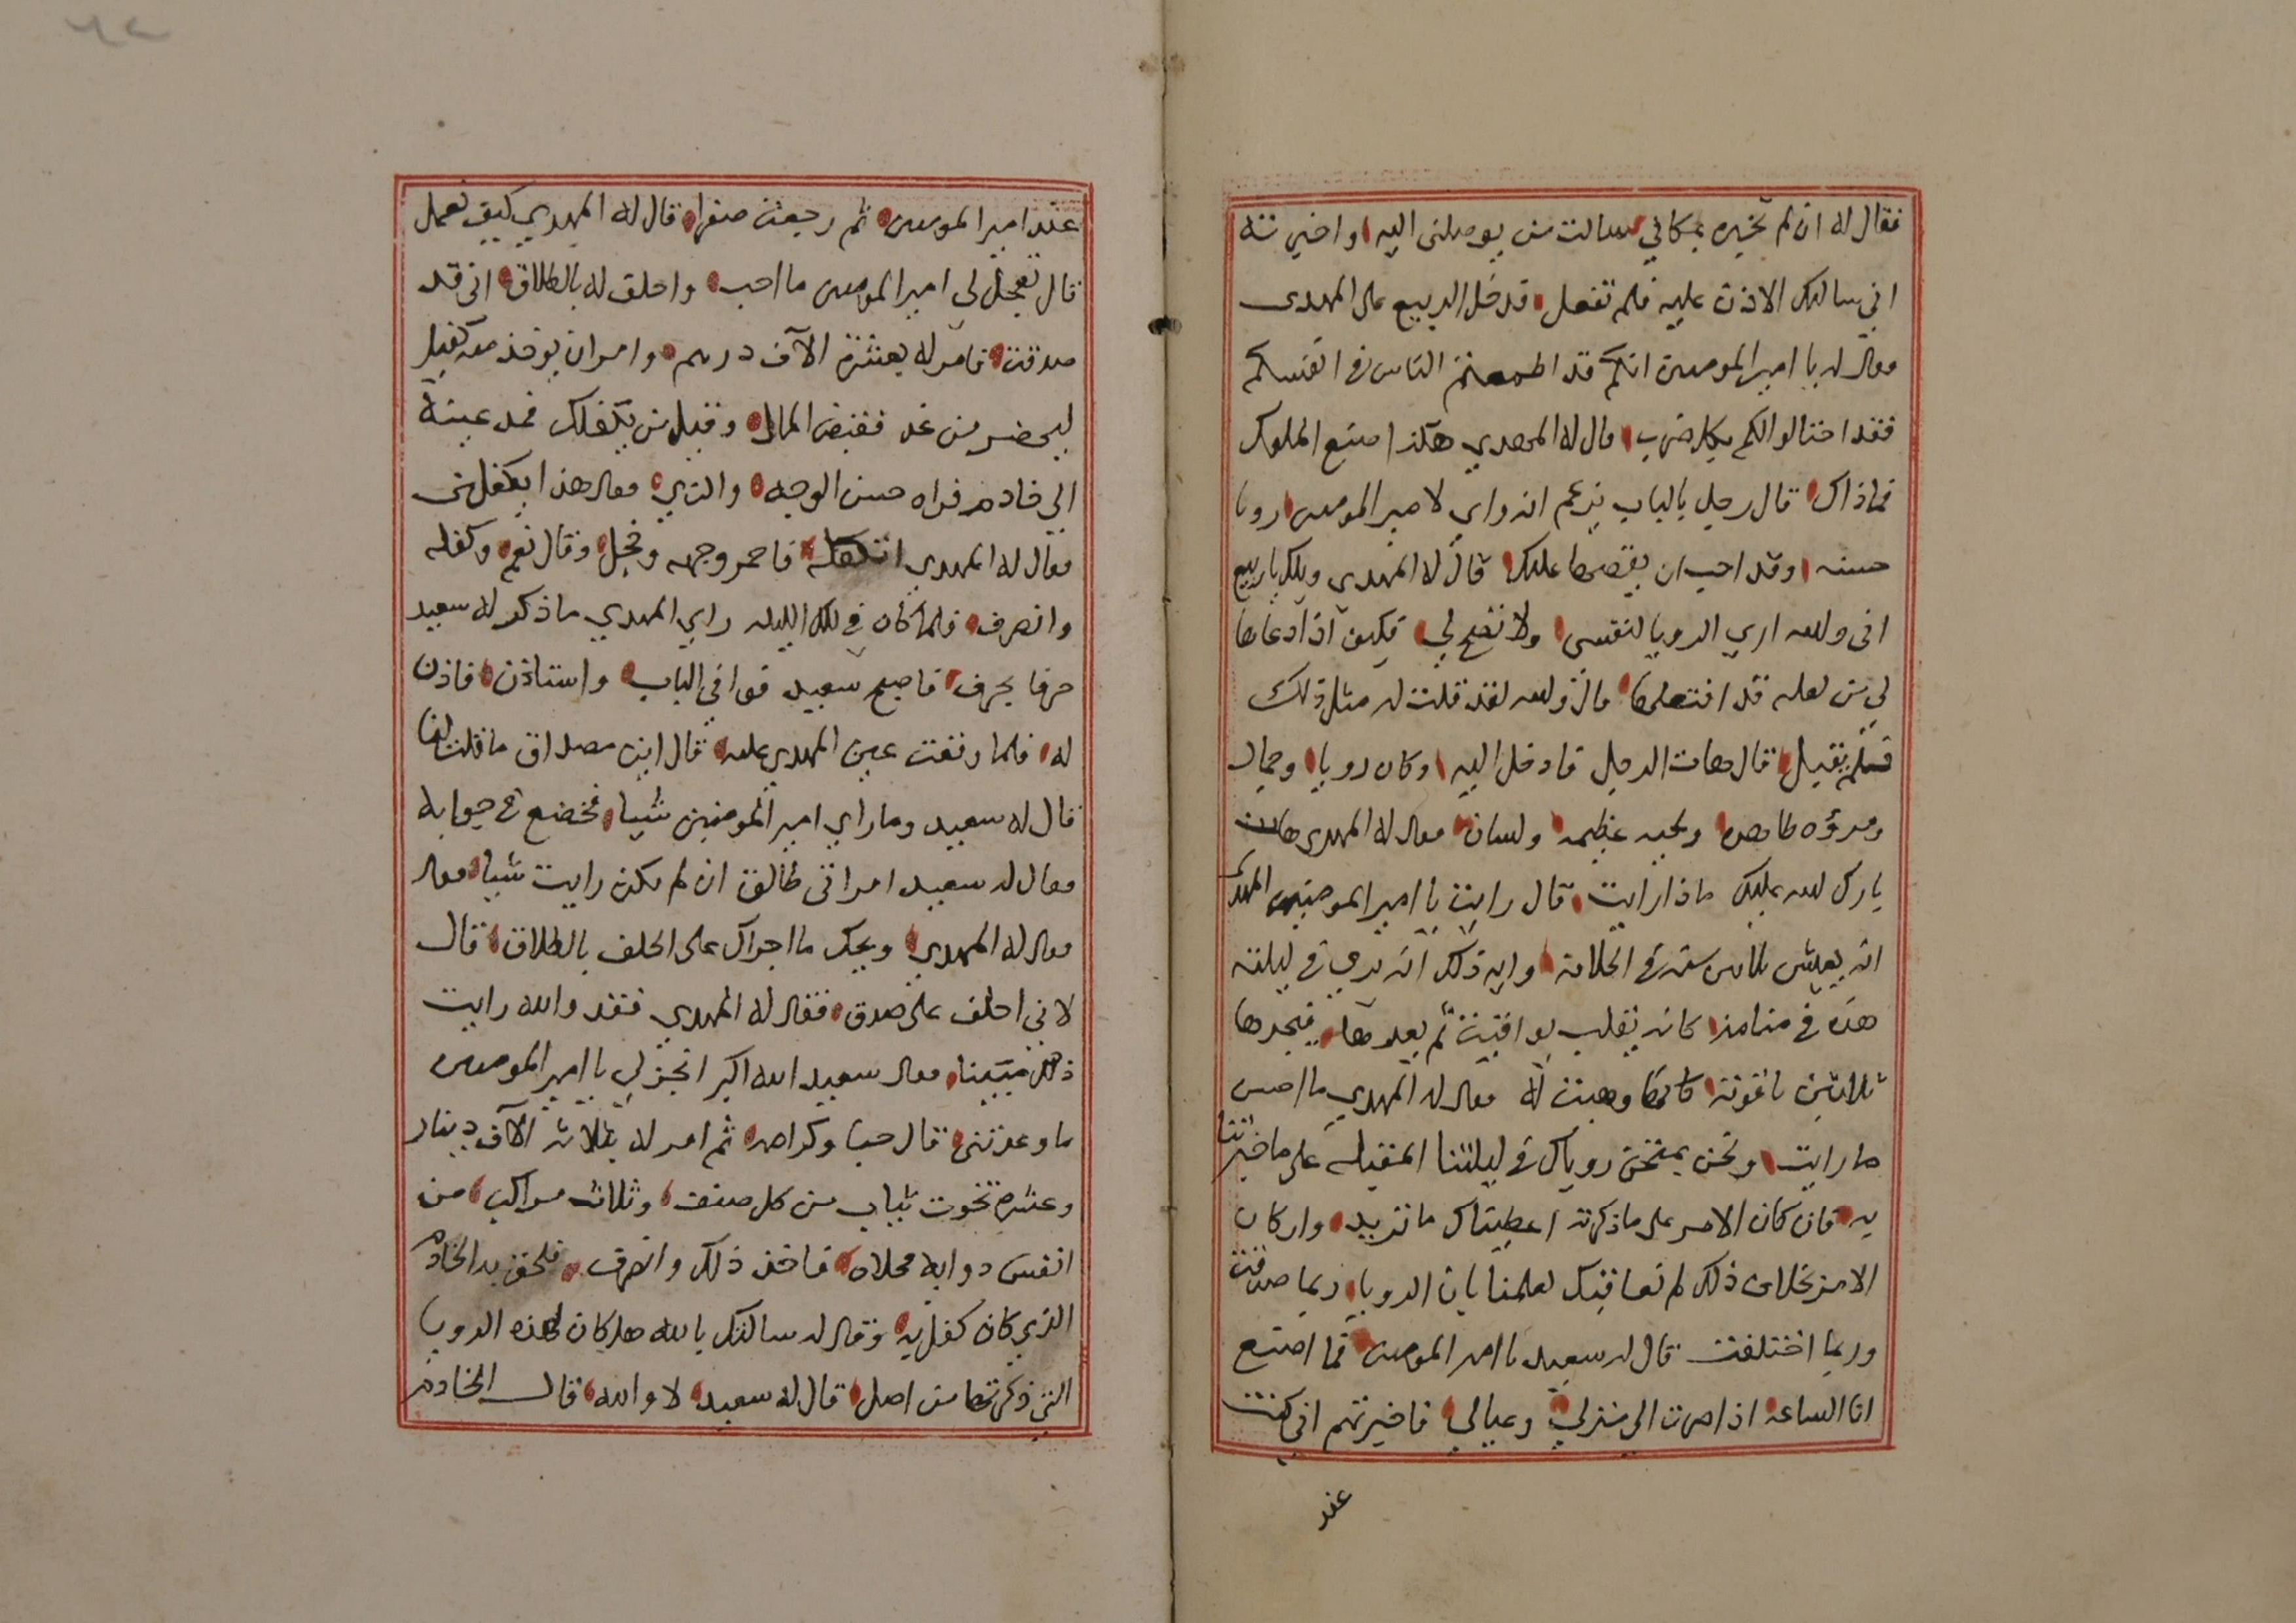 فقال له ان لم تخبره بمكاني سالت من يوصلنى اليه واخبرته
اني سالتك الاذن عليه فلم تفعل فدخل الربيع على المهدى
فقال له يا امير المومنين انكم قد اطمعتم الناس في انفسكم
فقد احتالوا لكم بكل ضرب قال له المهدي هكذا صنع الملوك
فما ذاك قال رجل بالباب يزعم انه راي لامير المومنين رويا
حسنه وقد احب ان يقصها عليك قال له المهدى ويلك يا ربيع
انى والله اري الرويا لنفسى ولا تصح لي فكيف اذا ادعاها
لي من لعله قد افتعلها قال والله لقد قلت له مثل ذلك
فلم يقبل قال هات الرجل فادخل اليه وكان له رويا وجمال
ومروه ظاهره ولحيه عظيمه ولسان فقال له المهدى هات
بارك الله عليك ماذا رايت قال رايت يا امير المومنين المهدى
انه يعيش ثلاثين سنه في الخلافة واية ذلك انه يري في ليلته
هذه في منامه كانه يقلب يواقيت ثم يعدها فيجدها
ثلاثين ياقوتة كانها وهبت له فقال له المهدي ما احسن
ما رايت ونحن نمتحن روياك في ليلتنا المقبله على ما خبرتنا
به فان كان الامر على ما ذكرته اعطيناك ما تريد وان كان
الامر بخلاف ذلك لم نعاقبك لعلمنا بان الرويا ربما صدقت
وربما اختلفت قال له سعيد يا امير المومنين فما اصنع
انا الساعه اذا صرت الى منزلي وعيالي فاخبرتهم اني كنت
عند
عند امير المومنين ثم رجعت صفرا قال له المهدي كيف نعمل
قال تعجل لي امير المومنين ما احب واحلف له بالطلاق انى قد
صدقت فامر له بعشرة الآف درهم وامر ان يوخذ منه كفيل
ليحضر من غد فقبض المال وقيل من يكفلك فمد عينه
الى خادم فراه حسن الوجه والزي فقال هذا يكفلنى
فقال له المهدي اتكفله فاحمر وجهه وخجل وقال نعم وكفله
وانصرف فلما كان في تلك الليله راي المهدي ما ذكر له سعيد
حرفا بحرف فاصبح سعيد فوافى الباب واستاذن فاذن
له فلما وقعت عين المهدي عليه قال اين مصداق ما قلت لنا
قال له سعيد وما راي امير المومنين شيا فخضع في جوابه
فقال له سعيد امراتى طالق ان لم تكن رايت شيا فقال
فقال له المهدي ويحك ما اجراك على الحلف بالطلاق قال
لاني احلف على صدق فقال له المهدي فقد والله رايت
ذلك مبينا فقال سعيد الله اكبر انجز لي يا امير المومنين
ما وعدتنى قال حبا وكرامه ثم امر له بثلاثه الآف دينار
وعشره تخوت ثياب من كل صنف وثلاث مراكب من
انفس دوابه محلاه فاخذ ذلك وانصرف فلحق به الخادم
الذي كان كفل به وقال له سالتك بالله هل كان لهذه الرويا
التي ذكرتها من اصل قال له سعيد لا والله قال الخادم